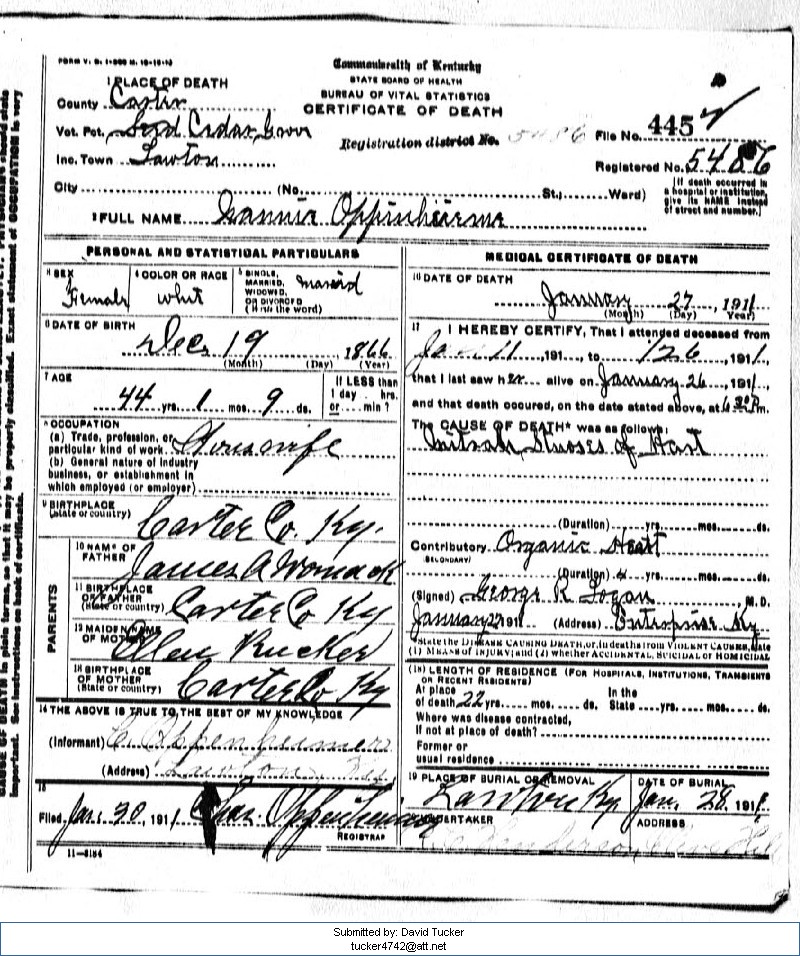 FORM V. S. 1-500 M. 10-15-10
Commonwealth of Kentucky
STATE BOARD OF HEALTH
BUREAU OF VITAL STATISTICS
CERTIFICATE OF DEATH
1 PLACE OF DEATH
County Carter
Vot. Pct.
Inc. Town Lawton
City (No. St.; Ward)
Registration district No. 5486
File No. 4452
Registered No. 5486
[If death occurred in a hospital or institution, give its NAME instead of street and number.]
2 FULL NAME Oppinheirme
PERSONAL AND STATISTICAL PARTICULARS
3 SEX Female
4 COLOR OR RACE whit
5 SINGLE, MARRIED, WIDOWED, OR DIVORCED (Write the word) Married
6 DATE OF BIRTH Dec 19 1866
(Month) (Day) (Year)
7 AGE 44 yrs. 1 mos. 9 ds.
If LESS than 1 day . hrs. or min ?
8 OCCUPATION
(a) Trade, profession, or particular kind of work Housewife
(b) General nature of industry business, or establishment in which employed (or employer)
9 BIRTHPLACE (State or country) Carter Co Ky.
PARENTS
10 NAME OF FATHER James A Womack
11 BIRTHPLACE OF FATHER (State or country) Carter Co Ky
12 MAIDEN NAME OF MOTHER Elen Rucker
13 BIRTHPLACE OF MOTHER (State or country) Carter Co Ky
14 THE ABOVE IS TRUE TO THE BEST OF MY KNOWLEDGE
(Informant) C. Oppenheimer
(Address) Lawton, Ky
15 Filed Jan. 30, 1911 Chas. Oppenheimer
REGISTRAR
11-3184
MEDICAL CERTIFICATE OF DEATH
16 DATE OF DEATH January 27, 1911
(Month) (Day) Year)
17 I HEREBY CERTIFY, That I attended deceased from
11, 191 , to 1 26, 1911,
that I last saw her alive on January 26, 1911,
and that death occured, on the date stated above, at 6 30 P.m.
The CAUSE OF DEATH* was as follows:
of Hart
(Duration) yrs. mos. ds.
Contributory Organic Heart
SECONDARY)
(Duration) 4 yrs. mos. ds.
(Signed) George R Logan, M.D.
January 27 1911 (Address) Enterprise Ky
*State the DISEASE CAUSING DEATH, or, in deaths from VIOLENT CAUSES, state
(1) MEANS OF INJURY; and (2) whether ACCIDENTAL, SUICIDAL OR HOMICIDAL
(18) LENGTH OF RESIDENCE (FOR HOSPITALS, INSTITUTIONS, TRANSIENTS OR RECENT RESIDENTS)
At place of death 22 yrs. mos. ds. In the State yrs. mos. ds.
Where was disease contracted, If not at place of death?
Former or usual residence
19 PLACE OF BURIAL OR REMOVAL Lawton Ky
DATE OF BURIAL Jan. 28, 1911
UNDERTAKER Henderson
ADDRESS Olive Hill
Submitted by: David Tucker
tucker4742@att.net